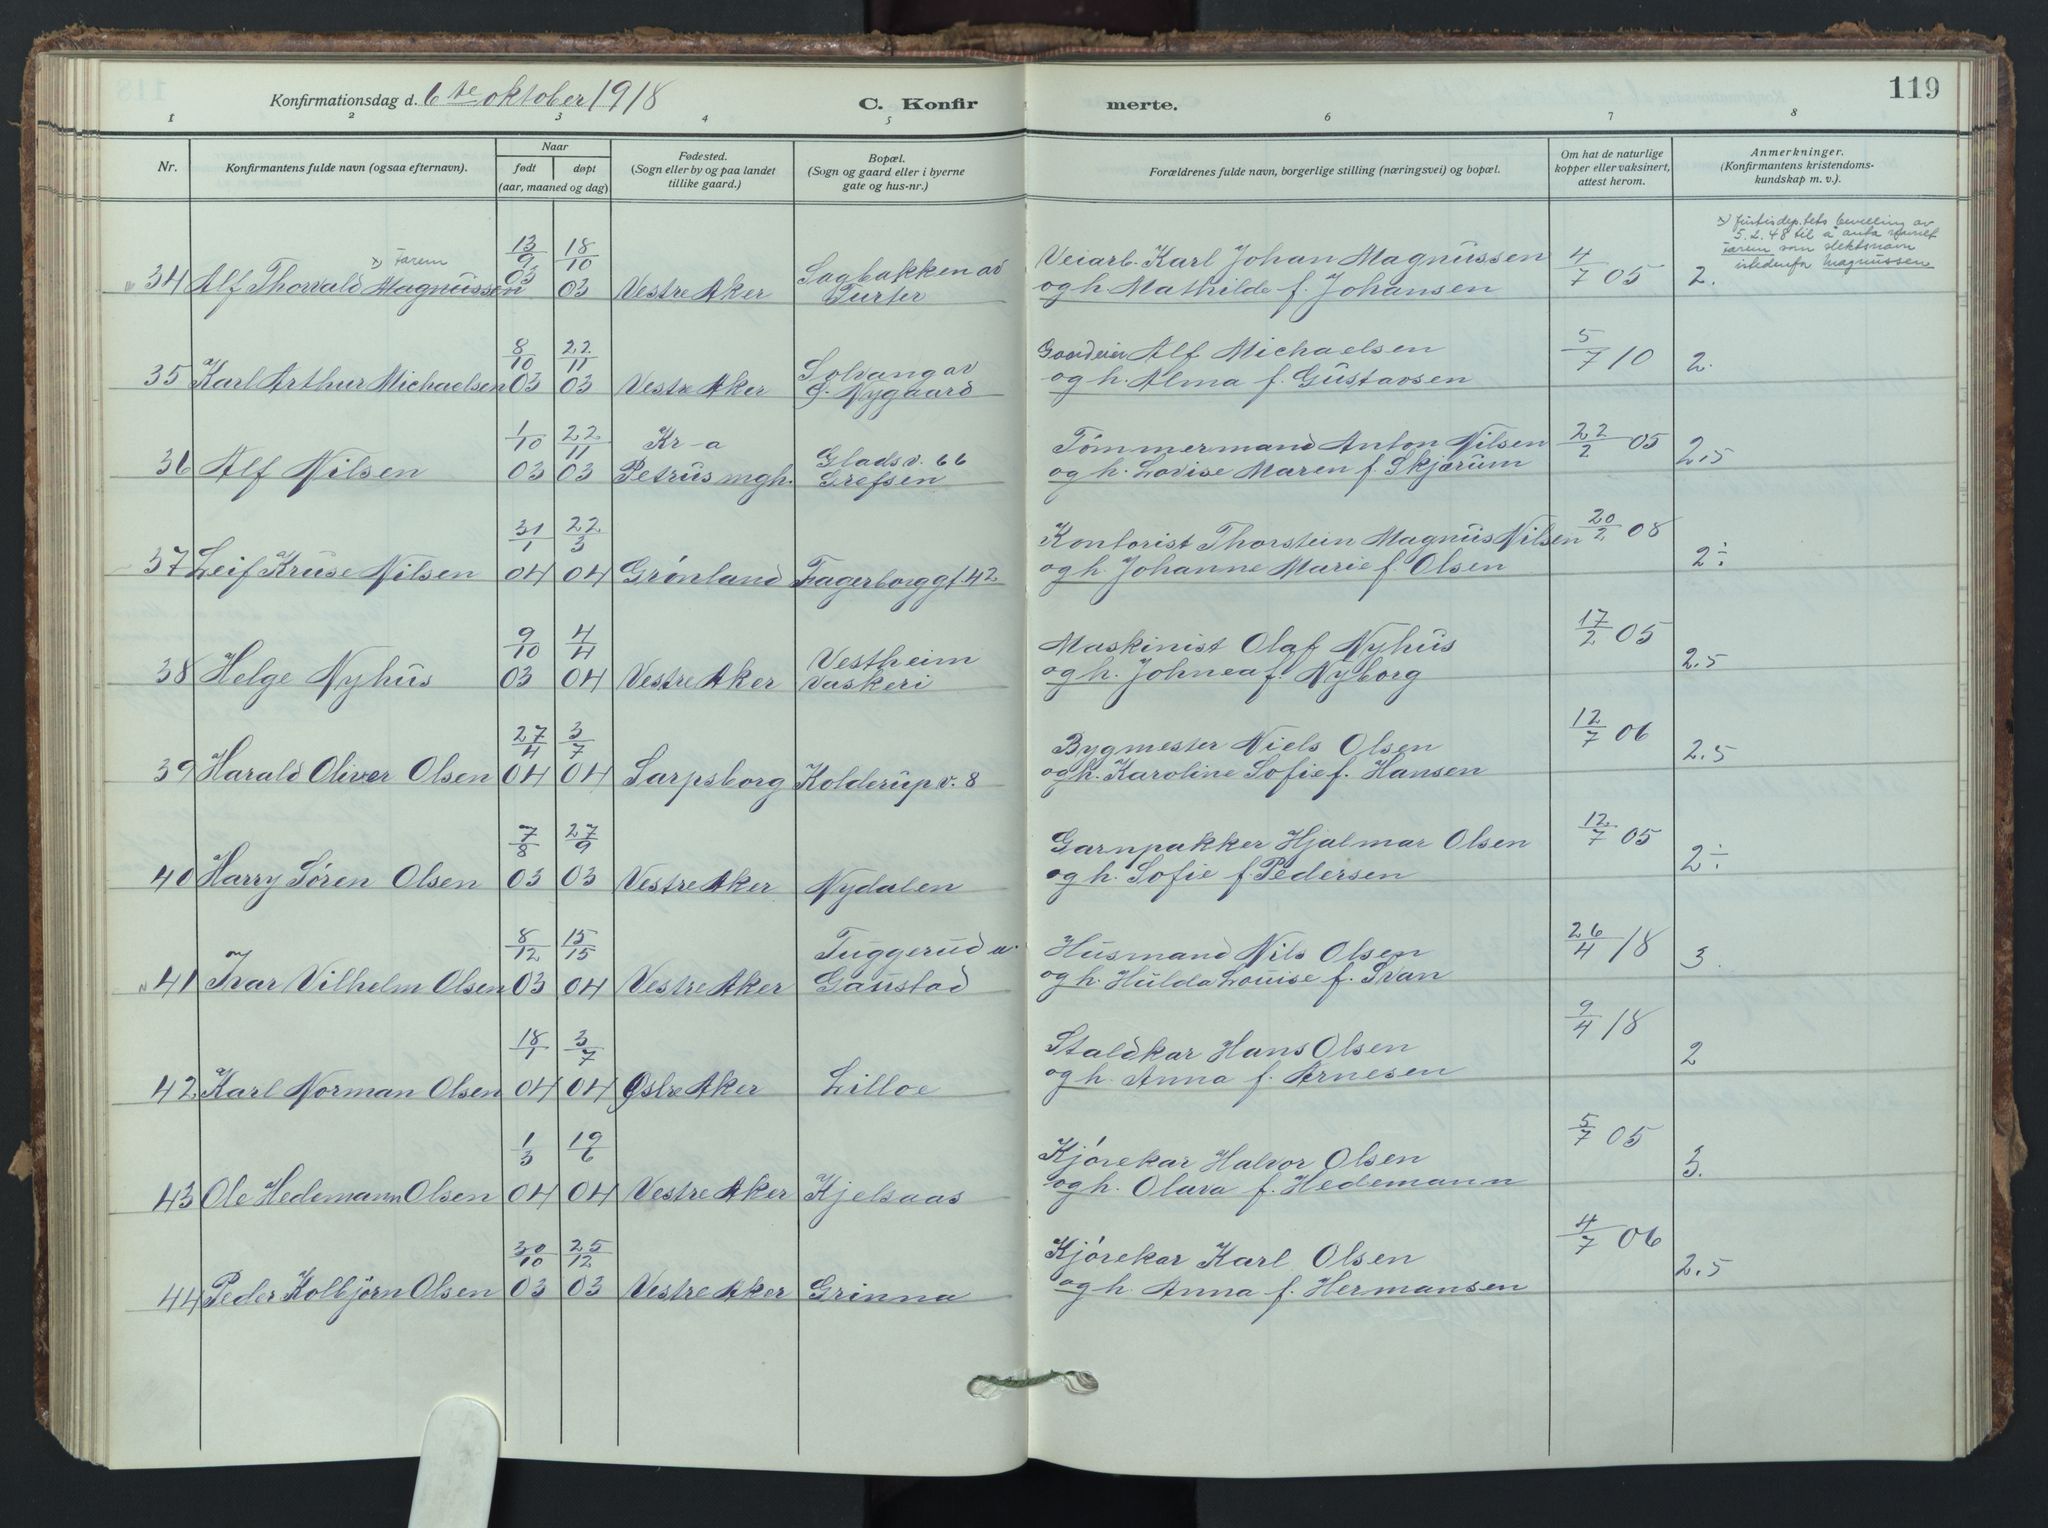 119
Konfirmationsdag d. 6te oktober 1918 C. Konfirmerte.
1 2 3 4 5 6 7 8
Nr. Konfirmantens fulde navn (ogsaa efternavn). Naar født døpt (aar, maaned og dag) Fødested. (Sogn eller by og paa landet tillike gaard.) Bopæl. (Sogn og gaard eller i byerne gate og hus-nr.) Forældrenes fulde navn, borgerlige stilling (næringsvei) og bopæl. Om hat de naturlige kopper eller vaksinert, attest herom. Anmerkninger. (Konfirmantens kristendoms-kundskap m. v.).
x) Justisdeptets bevilling av
5.2.48 til å anta navnet
Farem som slektsnavn
istedenfor Magnussen
x) Farem
13/9 18/10 Sagbakken av Veiarb. Karl Johan Magnussen 4/7 05
34 Alf Thorvald Magnussen 03 03 Vestre Aker Turter og h. Mathilde f. Johansen 2.
8/10 22/11 Solvang av Gaardeier Alf Michaelsen 5/7 10
35 Karl Arthur Michaelsen 03 03 Vestre Aker Ø. Nygaard og h. Alma f. Gustavsen 2.
1/10 22/11 Kr-a Gladsv. 66 Tømmermand Anton Nilsen 22/2 05
36 Alf Nilsen 03 03 Petrus mgh. Grefsen og h. Lovise Maren f. Skjørum 2.5
31/1 22/3 Kontorist Thorstein Magnus Nilsen 20/2 08
37 Leif Kruse Nilsen 04 04 Grønland Fagerborggt 42 og h. Johanne Marie f. Olsen 2÷
9/10 4/4 Vestheim Maskinist Olaf Nyhus 17/2 05
38 Helge Nyhus 03 04 Vestre Aker vaskeri og h. Johnea f. Nyborg 2.5
27/4 3/7 Bygmester Niels Olsen 12/7 06
39 Harald Oliver Olsen 04 04 Sarpsborg Kolderupv. 8 og h. Karoline Sofie f. Hansen 2.5
7/8 27/9 Garnpakker Hjalmar Olsen 12/7 05
40 Harry Søren Olsen 03 03 Vestre Aker Nydalen og h. Sofie f. Pedersen 2÷
8/12 15/15 Tuggerud u. Husmand Nils Olsen 26/4 18
41 Ivar Vilhelm Olsen 03 04 Vestre Aker Gaustad og h. Hulda Louise f. Svan 3.
18/1 3/7 Staldkar Hans Olsen 9/4 18
42 Karl Norman Olsen 04 04 Østre Aker Lilloe og h. Anna f. Arnesen 2
1/3 19/6 Kjørekar Halvor Olsen 5/7 05
43 Ole Hedemann Olsen 04 04 Vestre Aker Kjelsaas og h. Olava f. Hedemann 3.
30/10 25/12 Kjørekar Karl Olsen 4/7 06
44 Peder Kolbjørn Olsen 03 03 Vestre Aker Grinna og h. Anna f. Hermansen 2.5